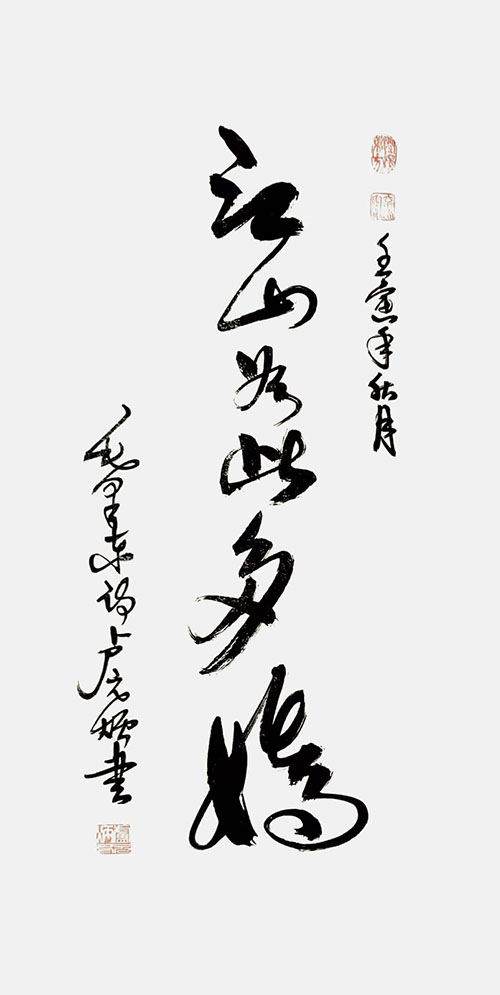 壬寅年秋月
江山如此多嬌
毛泽东诗卢书